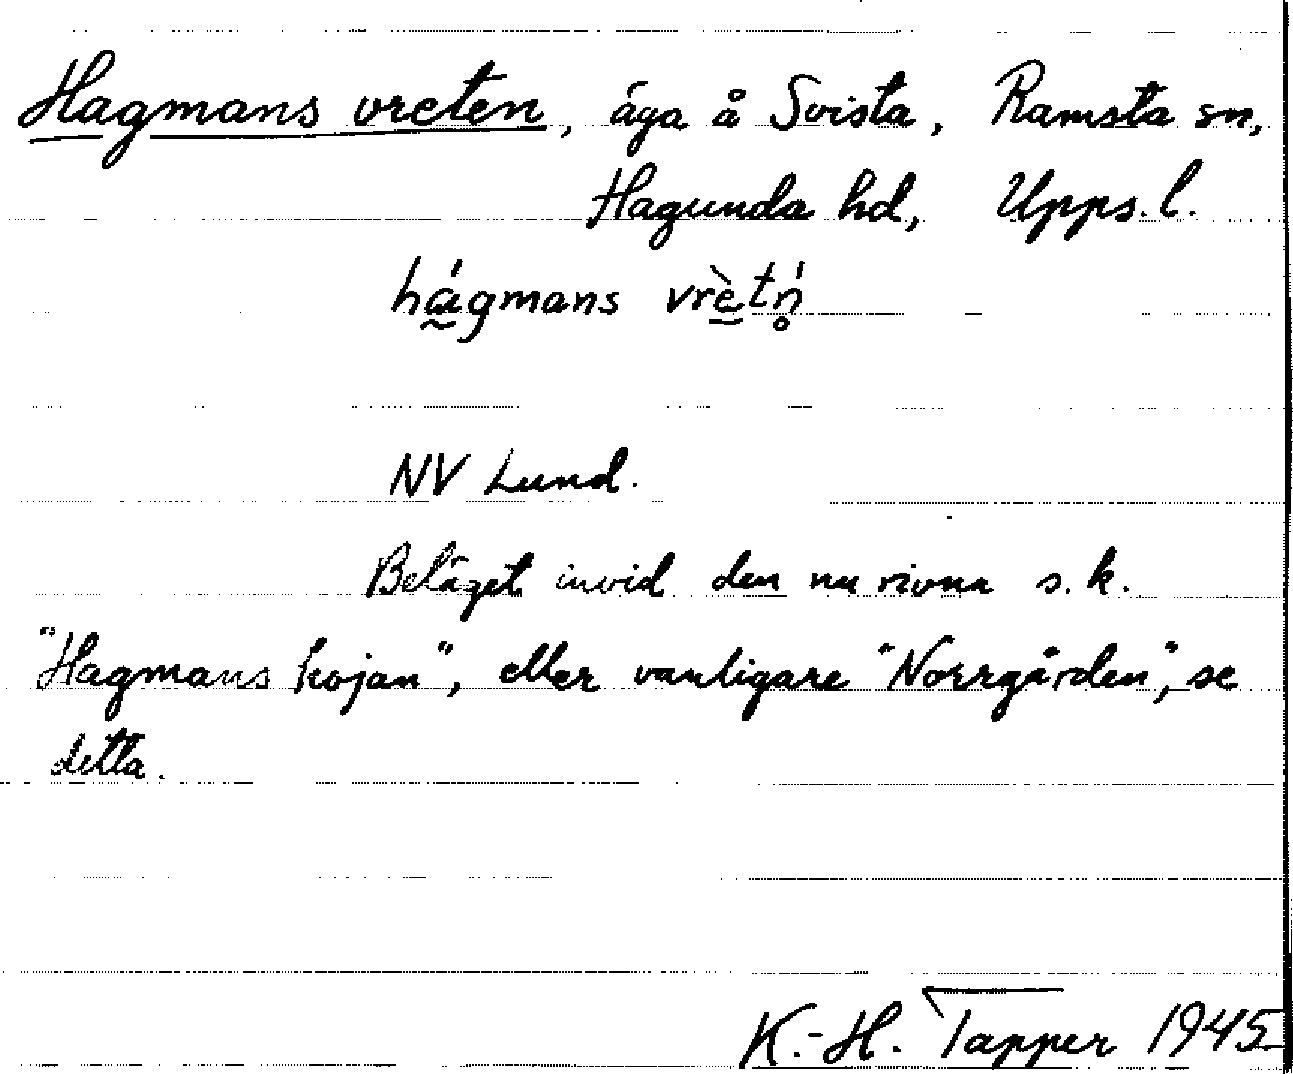 Hagmans vreten, äga å Svista, Ramsta sn,
Hagunda hd, Upps. l.
há̰gmans vrè̳tņ̊́
NV Lund.
Beläget invid den nu rivna s.k.
"Hagmans kojan", eller vanligare "Norrgården", se
detta.
K.-H. Tapper 1945